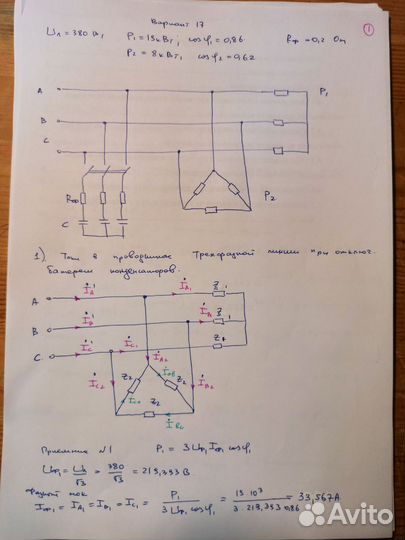 Вариант 17
1
Uл = 380 В, P₁ = 15 кВт; cos φ₁ = 0,86 Rф = 0,2 Ом
P₂ = 8 кВт, cos φ₂ = 0,62
A P₁
B
C
P₂
C
1) Токи в проводниках Трехфазной линии при отключ.
батареи конденсаторов.
A İA İA₁ Z₁
B İB Z₁
C İC İC₁ Z₁
İC₂ İA₂ İB₂
Z₂ Z₂
Z₂
Приемник N1 P₁ = 3 Uф₁ Iф₁ cos φ₁
Uф₁ = Uл/√3 = 380/√3 = 219,393 В
фазный ток
Iф₁ = IA₁ = IB₁ = IC₁ = P₁ / 3 Uф₁ cos φ₁ = 15·10³ / 3·219,393·0,86 = 33,567 А
Avito